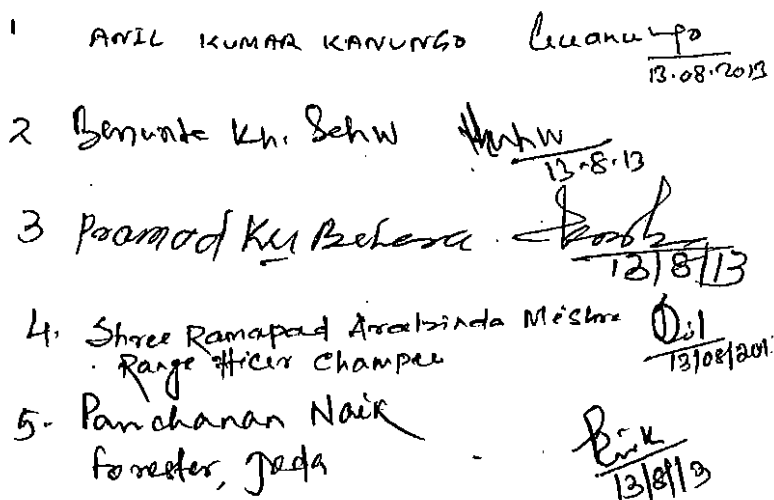 1 ANIL KUMAR KANUNGO
13.08.2013
2 Kh. Sehw
13-8-13
3 Pramod Ku Behera
13/8/13
4. Shree Ramapad Arabinda Mishra
Range Officer Champua
13/08/201
5. Panchanan Naik
forester, Joda
13/8/13